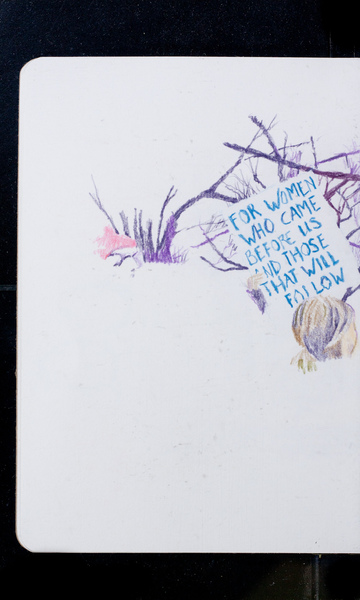 FOR WOMEN
WHO CAME
BEFORE US
AND THOSE
THAT WILL
FOLLOW